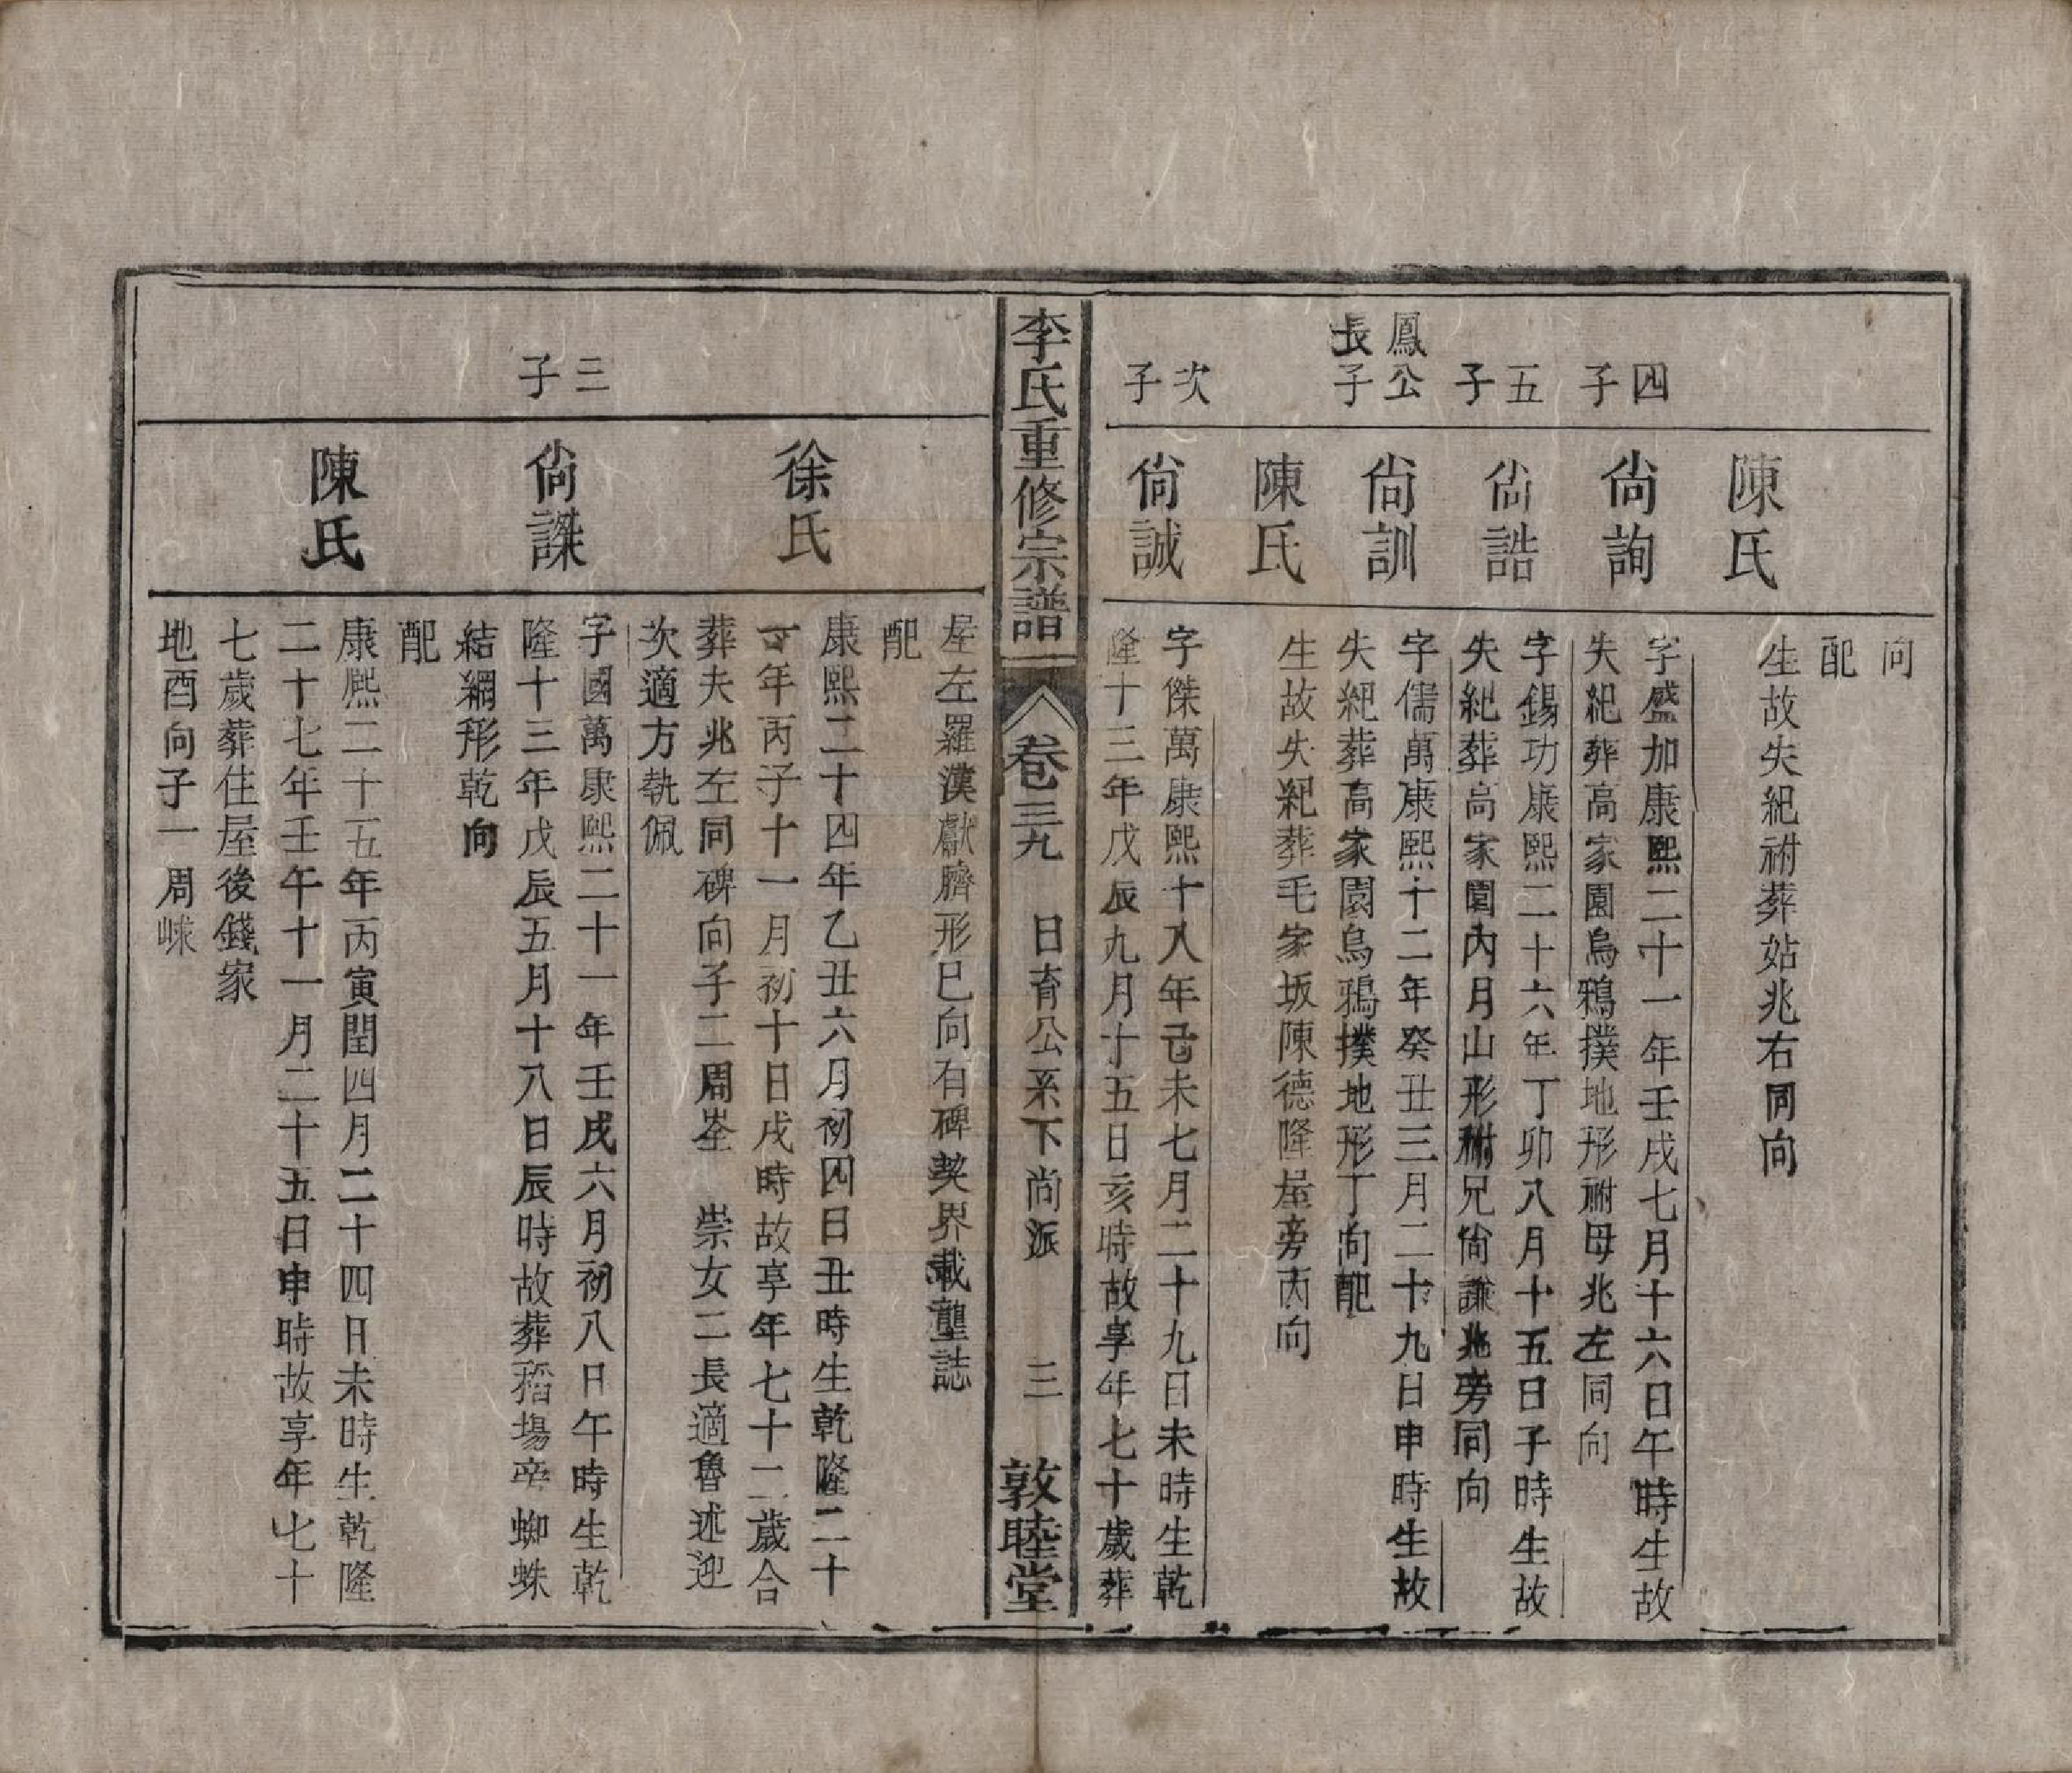 向
配
陳氏
生故失紀祔葬姑兆右同向
四子
尙詢
字盛加康熙二十一年壬戌七月十六日午時生故
失紀葬高家園烏鴉撲地形祔母兆左同向
五子
尙誥
字錫功康熙二十六年丁卯八月十五日子時生故
失紀葬高家園內月山形祔兄尙謙兆旁同向
鳳公長子
尙訓
字儒萬康熙十二年癸丑三月二十九日申時生故
失紀葬高家園烏鴉撲地形丁向配
陳氏
生故失紀葬毛家坂陳德隆屋旁丙向
次子
尙誠
字傑萬康熙十八年己未七月二十九日未時生乾
隆十三年戊辰九月十五日亥時故享年七十歲葬
李氏重修宗譜 卷三九 日育公系下尚派 三 敦睦堂
屋左羅漢獻臍形巳向有碑契界載塋誌
配
徐氏
康熙二十四年乙丑六月初四日丑時生乾隆二十
一年丙子十一月初十日戌時故享年七十二歲合
葬夫兆左同碑向子二周峑 崇女二長適魯述迎
次適方執佩
三子
尙謀
字國萬康熙二十一年壬戌六月初八日午時生乾
隆十三年戊辰五月十八日辰時故葬稻場塝蜘蛛
結網形乾向
配
陳氏
康熙二十五年丙寅閏四月二十四日未時生乾隆
二十七年壬午十一月二十五日申時故享年七十
七歲葬住屋後錢家
地酉向子一周崍